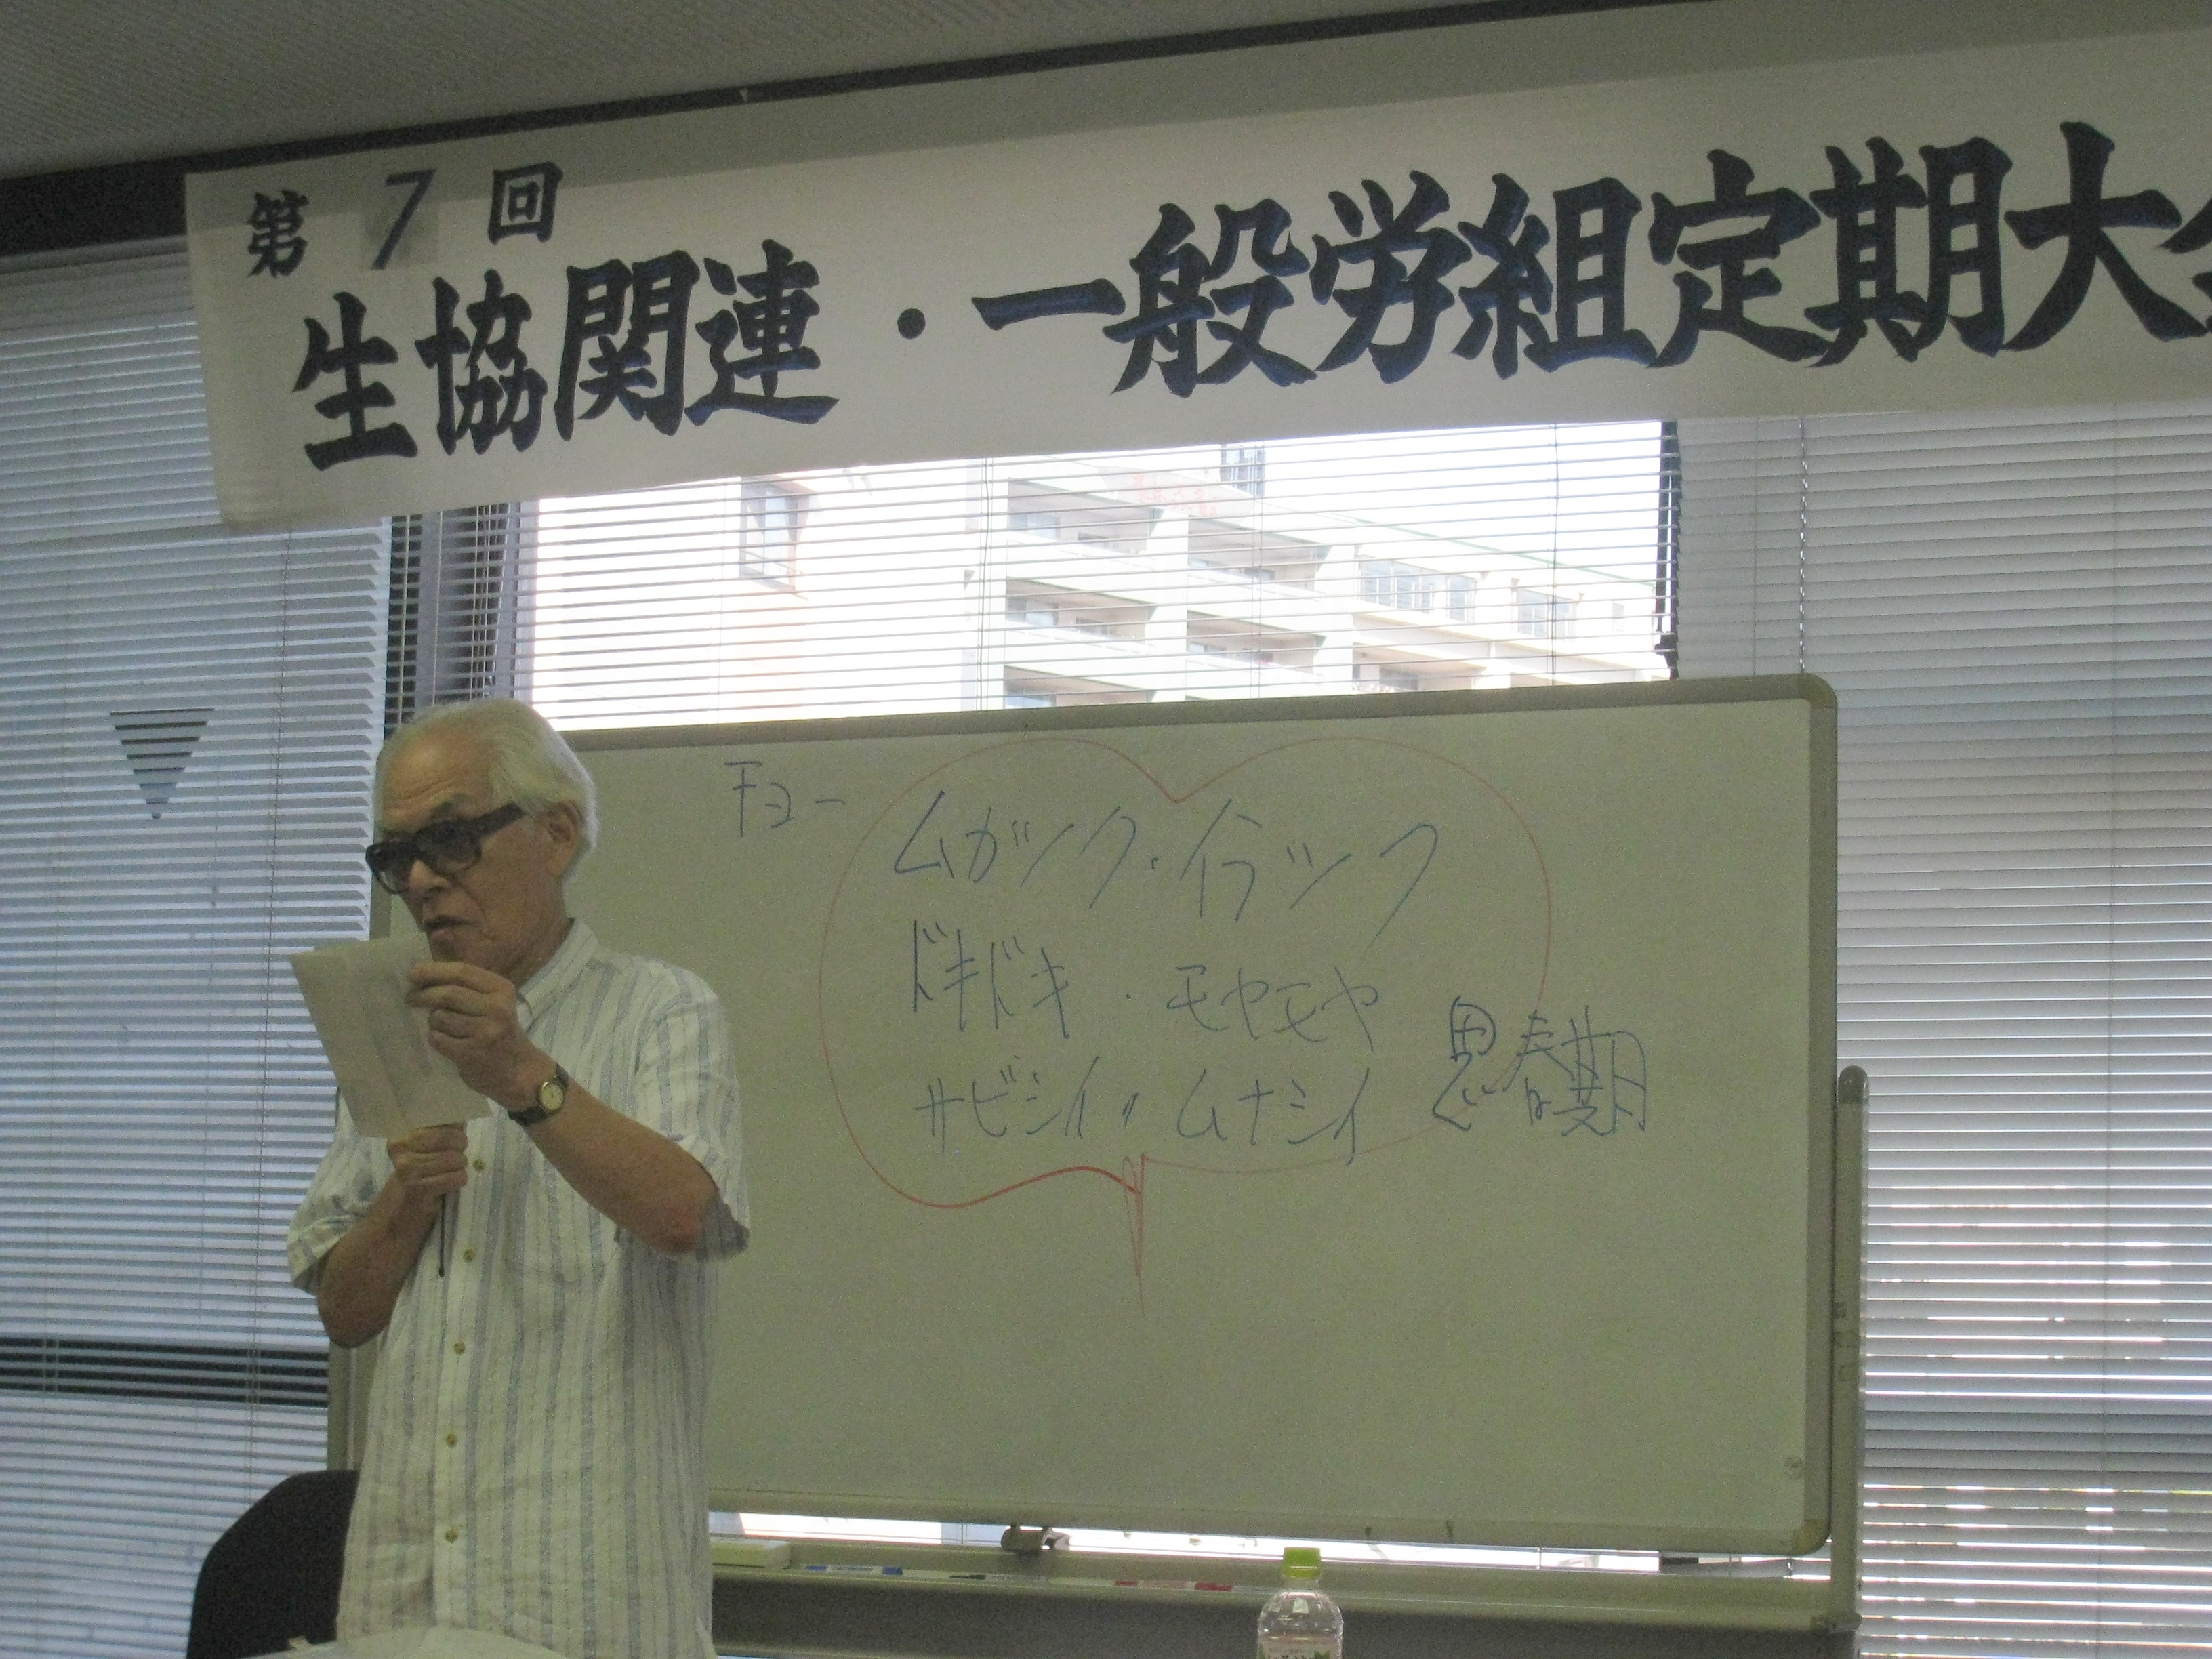 第7回
生協関連・一般労組定期大
チョー
ムカツク・イラツク
ドキドキ・モヤモヤ
サビシイ〃ムナシイ
思春期